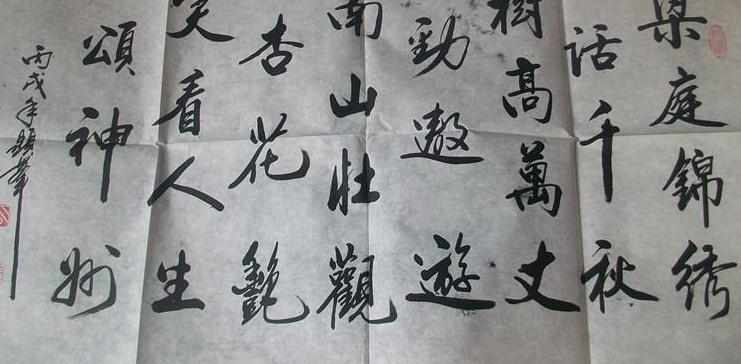 庭錦绣
话千秋
樹高萬丈
勁遨遊
南山壮觀
杏花艷
笑看人生
頌神州
丙戌年